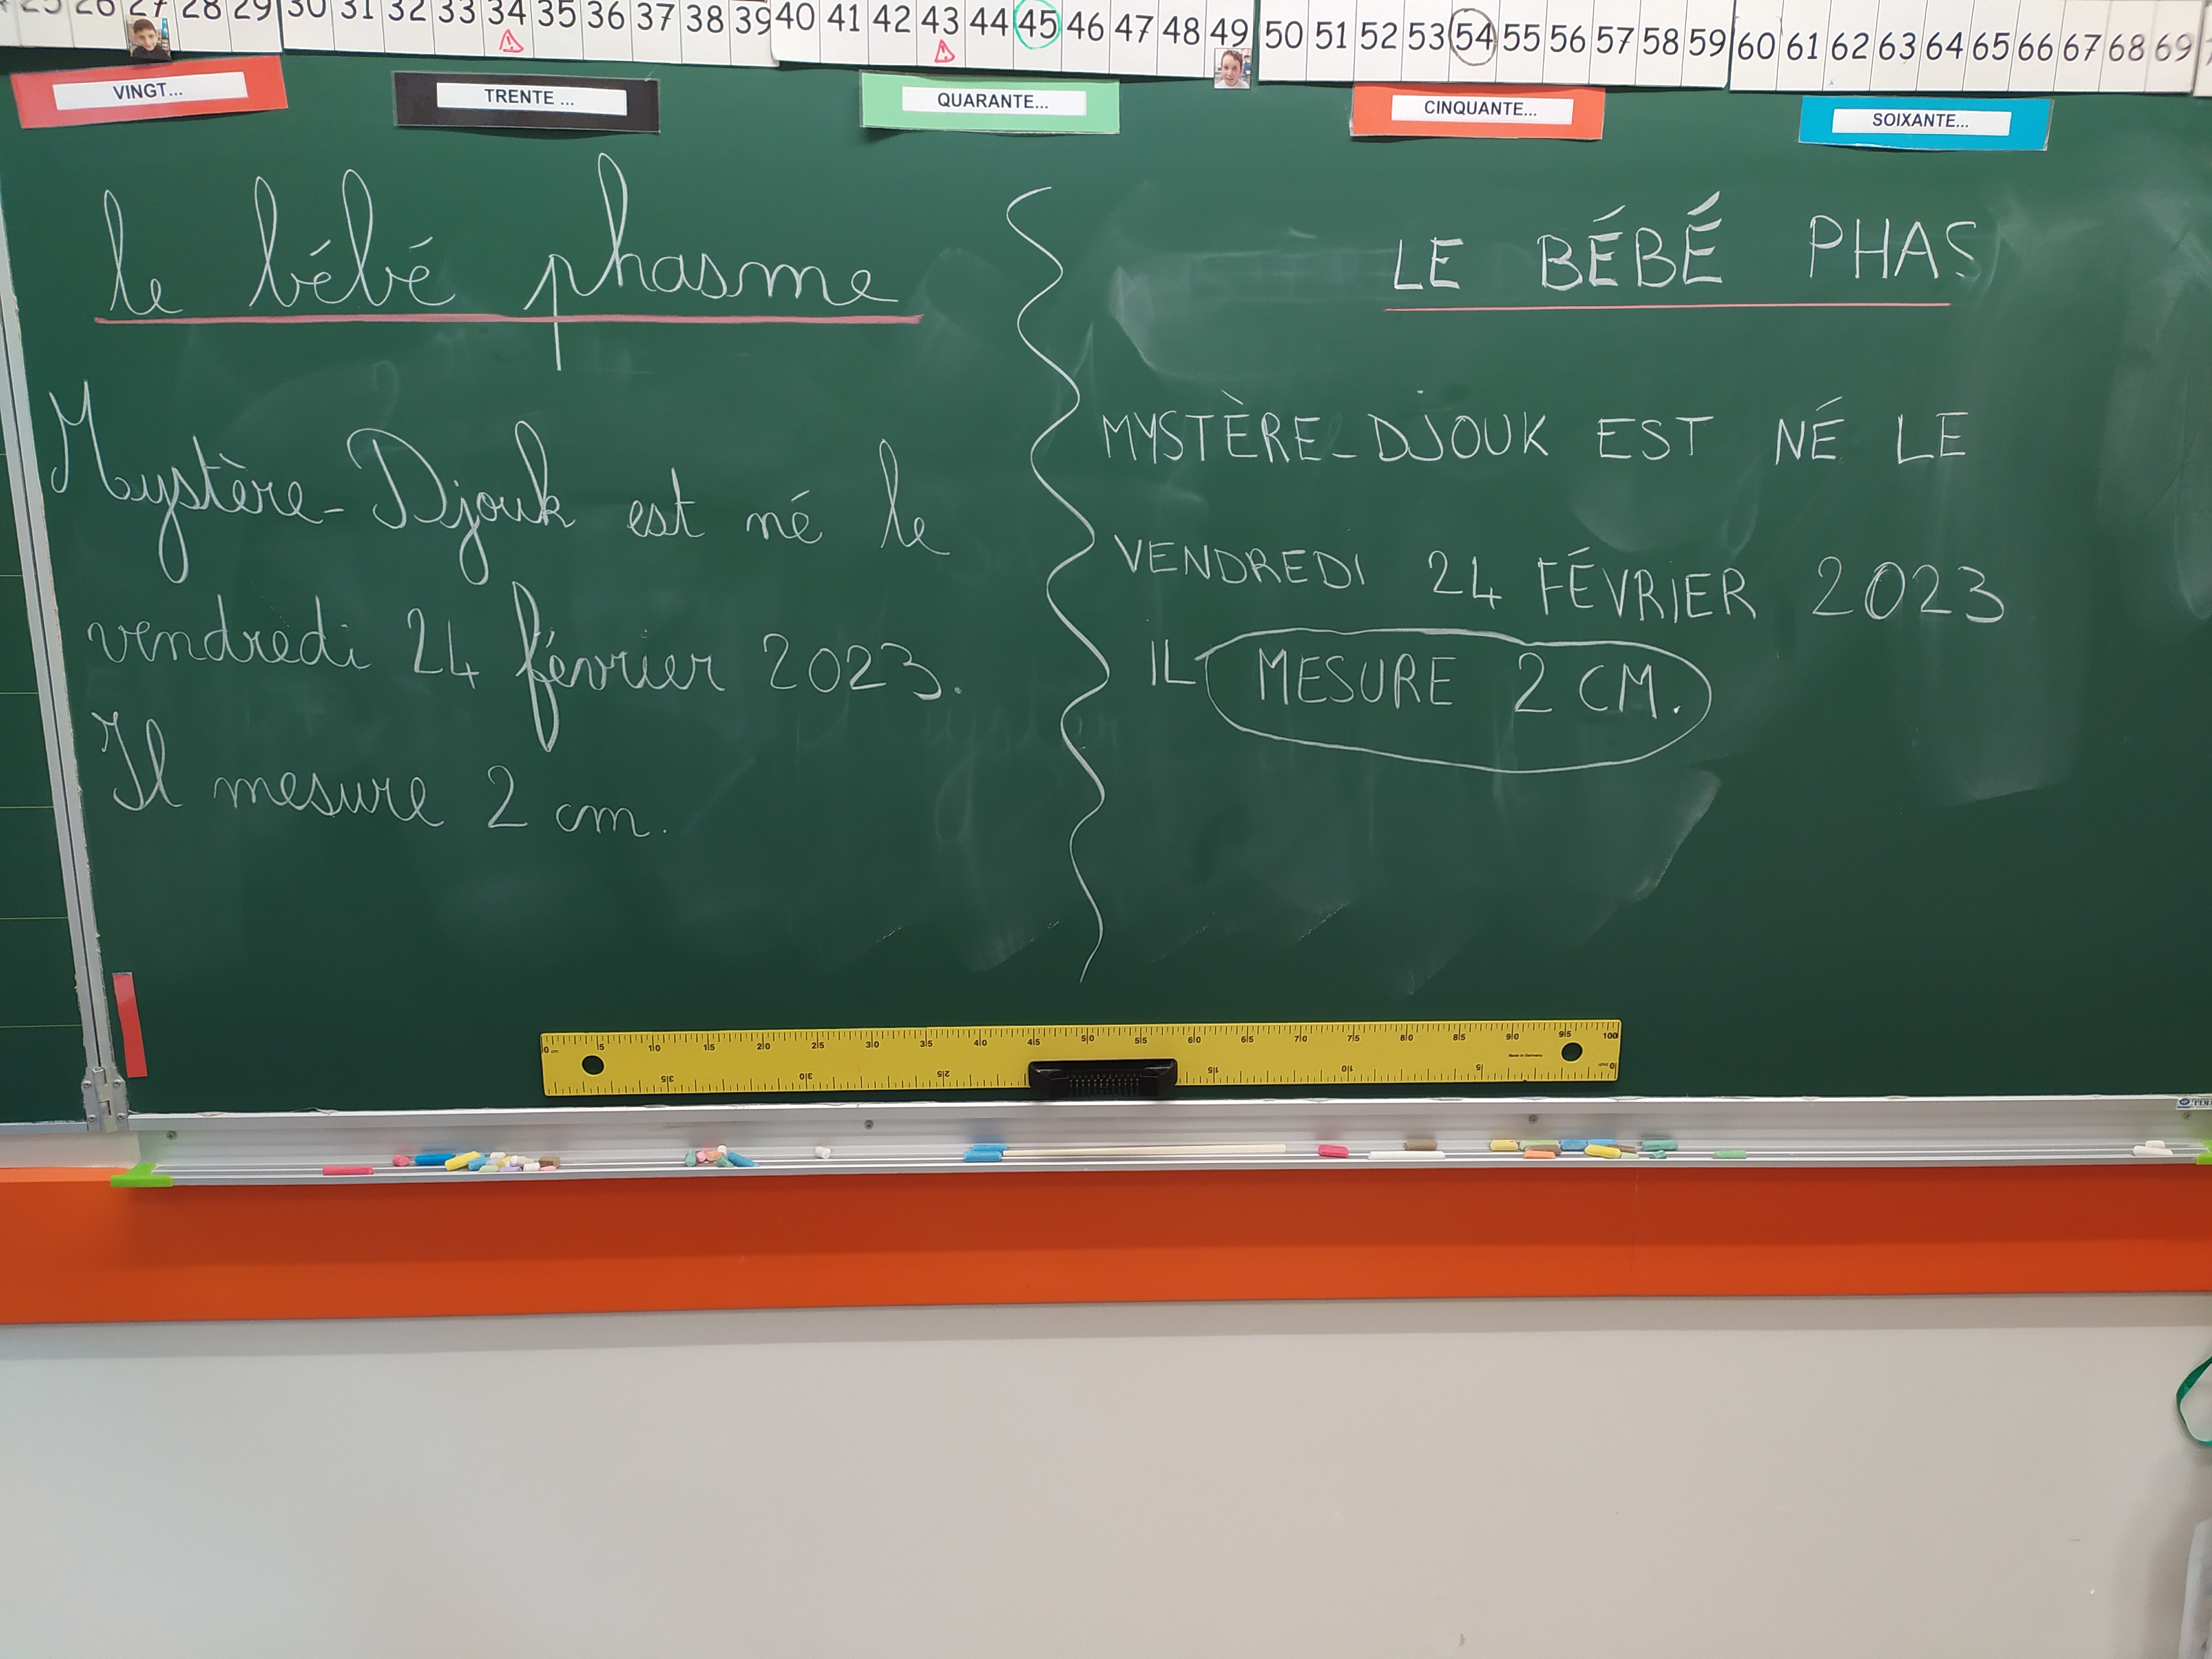 26 27 28 29 30 31 32 33 34 35 36 37 38 39 40 41 42 43 44 45 46 47 48 49 50 51 52 53 54 55 56 57 58 59 60 61 62 63 64 65 66 67 68 69
VINGT... TRENTE ... QUARANTE... CINQUANTE... SOIXANTE...
le bébé phasme
Mystère-Djouk est né le
vendredi 24 février 2023.
Il mesure 2 cm.
LE BÉBÉ PHAS
MYSTÈRE-DJOUK EST NÉ LE
VENDREDI 24 FÉVRIER 2023
IL MESURE 2 CM.
0 cm 5 10 15 20 25 30 35 40 45 50 55 60 65 70 75 80 85 90 95 100
Made in Germany
35 30 25 15 10 5 0 inch